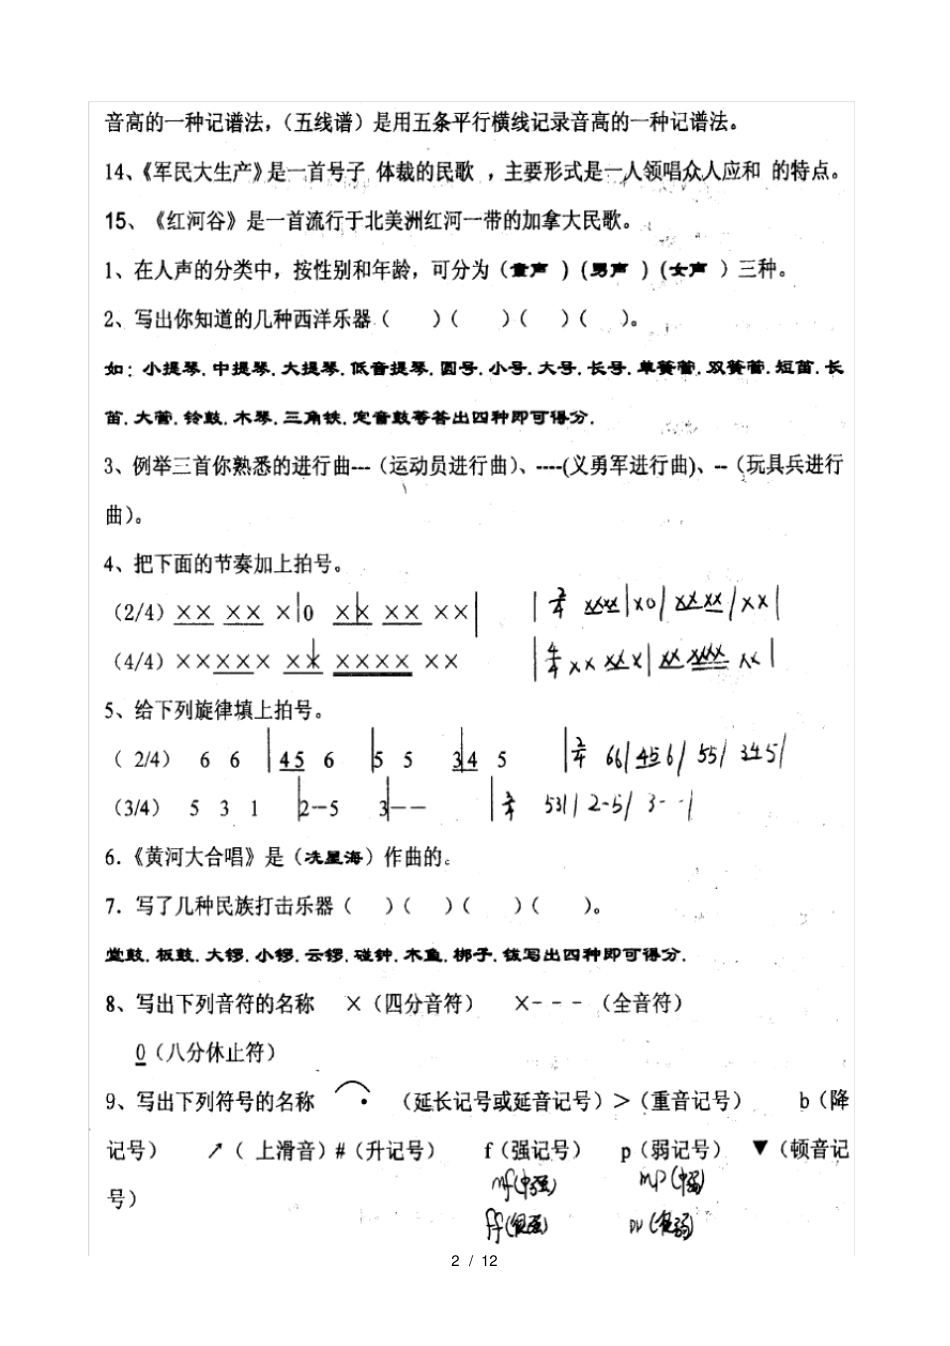 音高的一种记谱法，（五线谱）是用五条平行横线记录音高的一种记谱法。
14、《军民大生产》是一首号子 体裁的民歌 ，主要形式是一人领唱众人应和 的特点。
15、《红河谷》是一首流行于北美洲红河一带的加拿大民歌。
1、在人声的分类中，按性别和年龄，可分为（童声 ）（男声 ）（女声 ）三种。
2、写出你知道的几种西洋乐器（ ）（ ）（ ）（ ）。
如：小提琴.中提琴.大提琴.低音提琴.圆号.小号.大号.长号.单簧管.双簧管.短笛.长
笛.大管.铃鼓.木琴.三角铁.定音鼓等答出四种即可得分.
3、例举三首你熟悉的进行曲---（运动员进行曲）、----(义勇军进行曲)、--（玩具兵进行
曲）。
4、把下面的节奏加上拍号。
（2/4）×× ×× ×|0 ×|× ×× ××| | 2/4 ×××× |×0| ×××× |××|
（4/4）××××× ×× ×××× ×× | 4/4 ×× ×× ×| ×× ×××× ××|
5、给下列旋律填上拍号。
（ 2/4） 6 6 |45 6 |5 5 3|4 5 |2/4 66|456|55|345|
（3/4） 5 3 1 |2—5 3|—— |3/4 531|2-5|3--|
6.《黄河大合唱》是（冼星海）作曲的。
7．写了几种民族打击乐器（ ）（ ）（ ）（ ）。
堂鼓.板鼓.大锣.小锣.云锣.碰钟.木鱼.梆子.钹写出四种即可得分.
8、写出下列音符的名称 ×（四分音符） ×- - -（全音符）
0（八分休止符）
9、写出下列符号的名称 （延长记号或延音记号）＞（重音记号） b（降
记号） ↗（ 上滑音）#（升记号） f（强记号） p（弱记号） ▼（顿音记
号） mf(中强) mp(中弱)
ff(很强) pp(很弱)
2 / 12